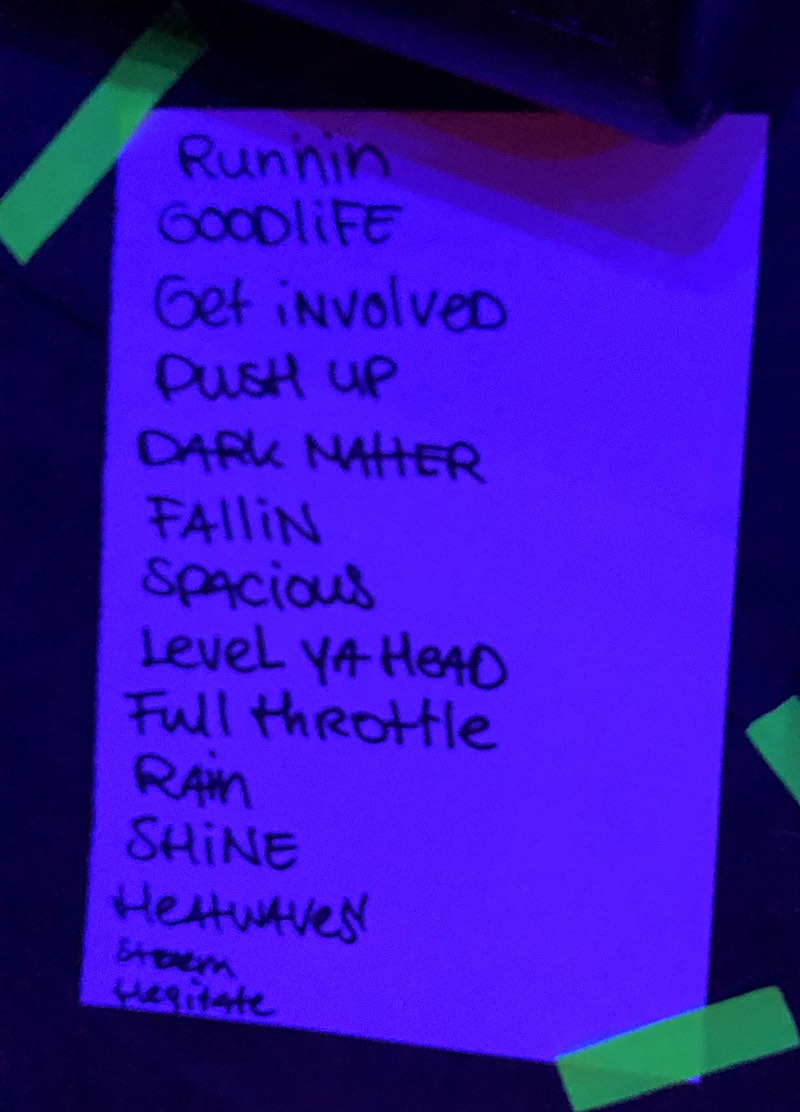 Runnin
GOODliFE
Get iNVolVeD
PUSH UP
DARK MATTER
FAlliN
SPACious
LeveL YA HeAD
Full thROttle
RAin
SHiNE
HeAtWAVeS
Storm
Hesitate